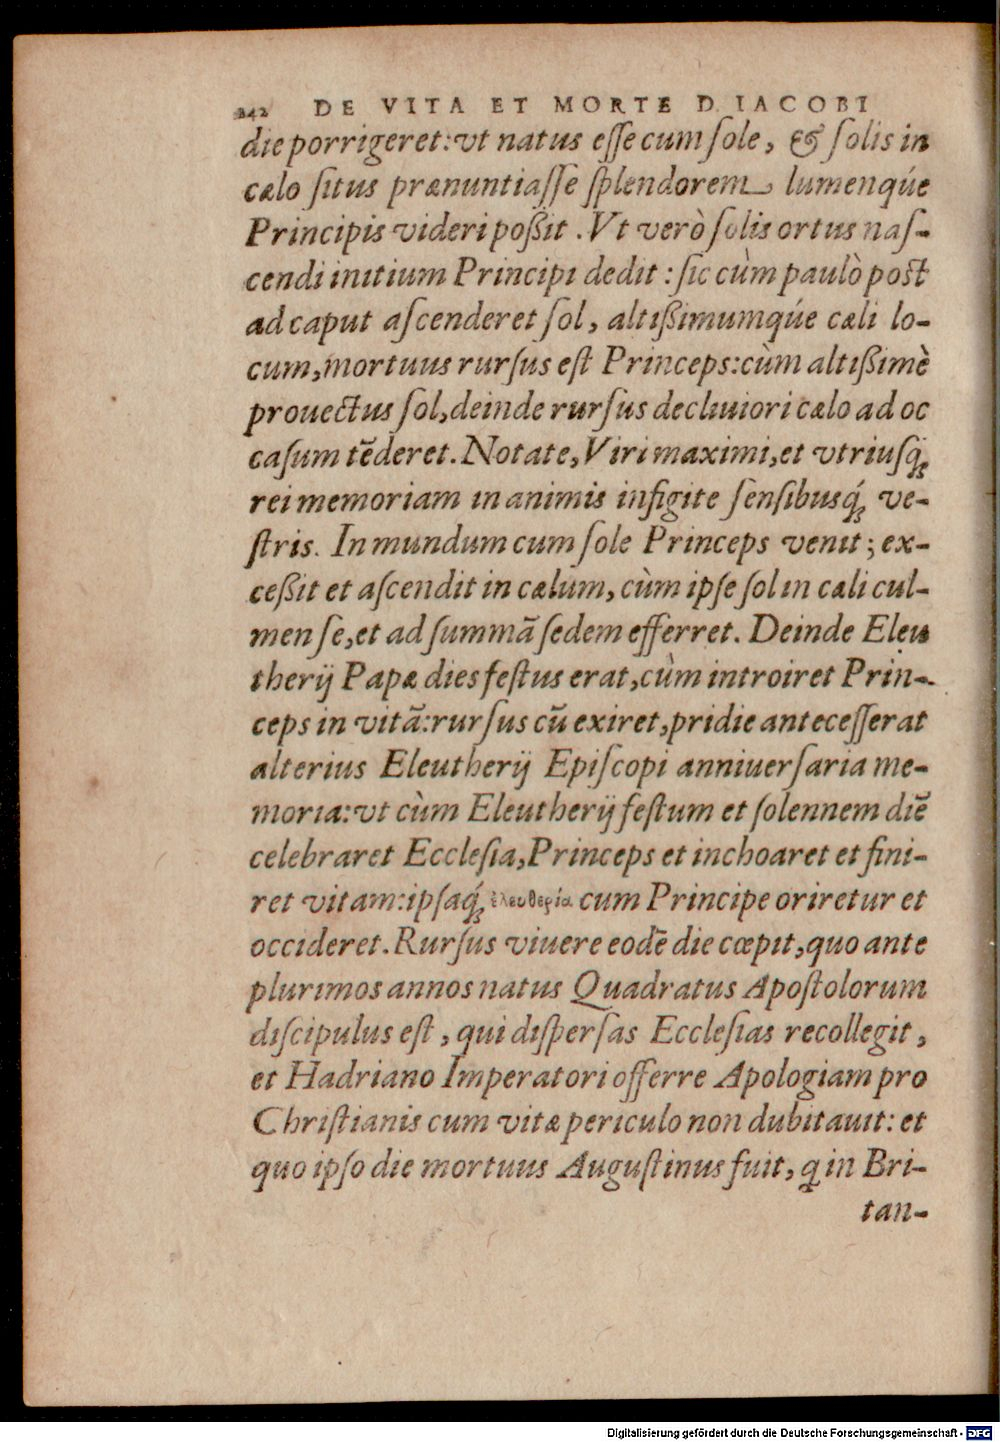 242 DE VITA ET MORTE D. IACOBI
die porrigeret: vt natus eſſe cum ſole, & ſolis in
cælo ſitus prænuntiaſſe ſplendorem lumenqúe
Principis videri poßit. Vt verò ſolis ortus naſ-
cendi initium Principi dedit: ſic cùm paulò poſt
ad caput aſcenderet ſol, altißimumqúe cæli lo-
cum, mortuus rurſus eſt Princeps: cùm altißimè
prouectus ſol, deinde rurſus decliuiori cælo ad oc
caſum tēderet. Notate, Viri maximi, et vtriuſq́;
rei memoriam in animis infigite ſenſibusq́; ve-
ſtris. In mundum cum ſole Princeps venit; ex-
ceßit et aſcendit in cælum, cùm ipſe ſol in cæli cul-
men ſe, et ad ſummā ſedem efferret. Deinde Eleu
therij Papæ dies feſtus erat, cùm introiret Prin-
ceps in vitā: rurſus cū exiret, pridie anteceſſerat
alterius Eleutherij Epiſcopi anniuerſaria me-
moria: vt cùm Eleutherij feſtum et ſolennem diē
celebraret Eccleſia, Princeps et inchoaret et fini-
ret vitam: ipſaq́; ἐλευθερία cum Principe oriretur et
occideret. Rurſus viuere eodē die cœpit, quo ante
plurimos annos natus Quadratus Apoſtolorum
diſcipulus eſt, qui diſperſas Eccleſias recollegit,
et Hadriano Imperatori offerre Apologiam pro
Chriſtianis cum vitæ periculo non dubitauit: et
quo ipſo die mortuus Auguſtinus fuit, q in Bri-
tan-
Digitalisierung gefördert durch die Deutsche Forschungsgemeinschaft - DFG